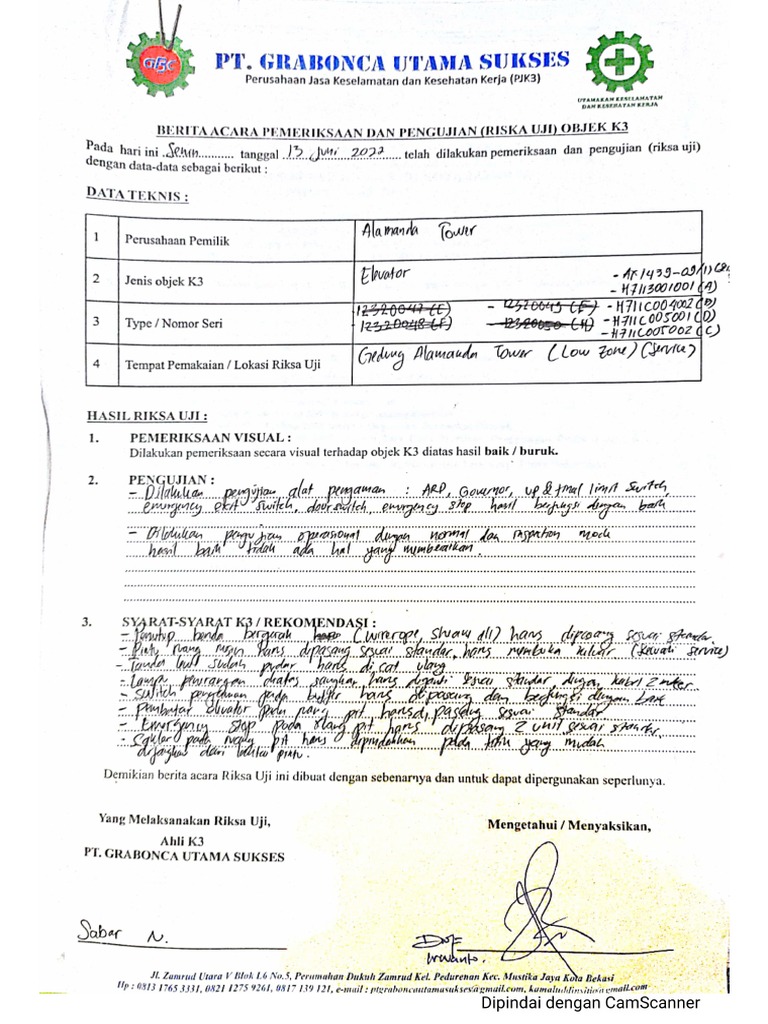 GBC
PT. GRABONCA UTAMA SUKSES
Perusahaan Jasa Keselamatan dan Kesehatan Kerja (PJK3)
UTAMAKAN KESELAMATAN
DAN KESEHATAN KERJA
BERITA ACARA PEMERIKSAAN DAN PENGUJIAN (RISKA UJI) OBJEK K3
Pada hari ini Senin tanggal 13 Juni 2022 telah dilakukan pemeriksaan dan pengujian (riksa uji)
dengan data-data sebagai berikut :
DATA TEKNIS :
1 Perusahaan Pemilik Alamanda Tower
2 Jenis objek K3 Elevator
- H7113001001 (A)
3 Type / Nomor Seri 12320047 (E) - 12320049 (F) - H711C004002 (B)
12320048 (F) - 12320050 (H) - H711C005001 (D)
- H711C005002 (C)
4 Tempat Pemakaian / Lokasi Riksa Uji Gedung Alamanda Tower (Low Zone) (Service)
HASIL RIKSA UJI :
1. PEMERIKSAAN VISUAL :
Dilakukan pemeriksaan secara visual terhadap objek K3 diatas hasil baik / buruk.
2. PENGUJIAN :
- Dilakukan pengujian alat pengaman : ARD, Governor, up & final limit switch,
emergency exit switch, door switch, emergency stop hasil berfungsi dengan baik
- Dilakukan pengujian operasional dengan normal dan inspection mode
hasil baik tidak ada hal yang membahayakan.
3. SYARAT-SYARAT K3 / REKOMENDASI :
- Penutup benda bergerak (wirerope, dll) harus dipasang sesuai standar
- Pintu ruang mesin harus dipasang sesuai standar, harus membuka keluar (kecuali service)
- Tanda level sudah pudar harus di cat ulang
- Lampu penerangan diatas sangkar harus diganti sesuai standar dengan kabel 2 meter
- Switch pada buffer harus dipasang dan berfungsi dengan baik
- pada ruang pit harus dipasang sesuai standar
- Emergency stop pada ruang pit harus dipasang 2 unit sesuai standar
- pada ruang pit harus dipindahkan pada titik yang mudah
dijangkau dari pintu.
Demikian berita acara Riksa Uji ini dibuat dengan sebenarnya dan untuk dapat dipergunakan seperlunya.
Yang Melaksanakan Riksa Uji,
Ahli K3
PT. GRABONCA UTAMA SUKSES
Mengetahui / Menyaksikan,
Sabar N.
Irwanto.
Jl. Zamrud Utara V Blok L6 No.5, Perumahan Dukuh Zamrud Kel. Pedurenan Kec. Mustika Jaya Kota Bekasi
Hp : 0813 1765 3331, 0821 1275 9261, 0817 139 121, e-mail : ptgraboncautamasukses@gmail.com, kamaluddinsiti@gmail.com
Dipindai dengan CamScanner